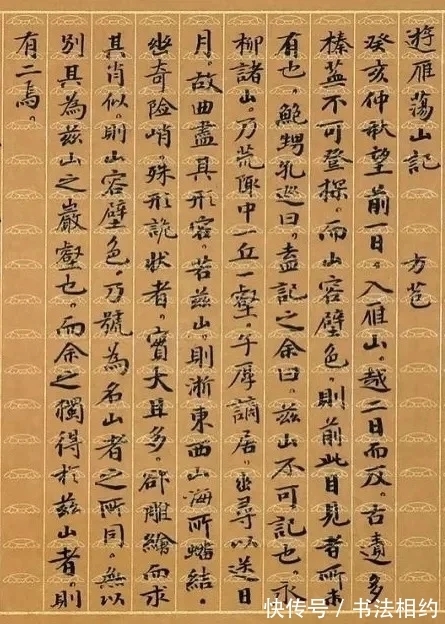 遊雁蕩山記　方苞
癸亥仲秋望前一日。入雁山。越二日而反。古蹟多
榛蕪不可登探。而山容壁色。則前此目見者所未
有也。鮑甥孔巡曰。盍記之余曰。茲山不可記也。永
柳諸山。乃荒陬中一丘一壑。子厚謫居。幽尋以送日
月。故曲盡其形容。若茲山。則浙東西山海所蟠結。
幽奇險峭。殊形詭狀者。實大且多。欲雕繪而求
其肖似。則山容壁色。乃號為名山者之所同。無以
別其為茲山之巖壑也。而余之獨得於茲山者。則
有二焉。
快传号／书法相约